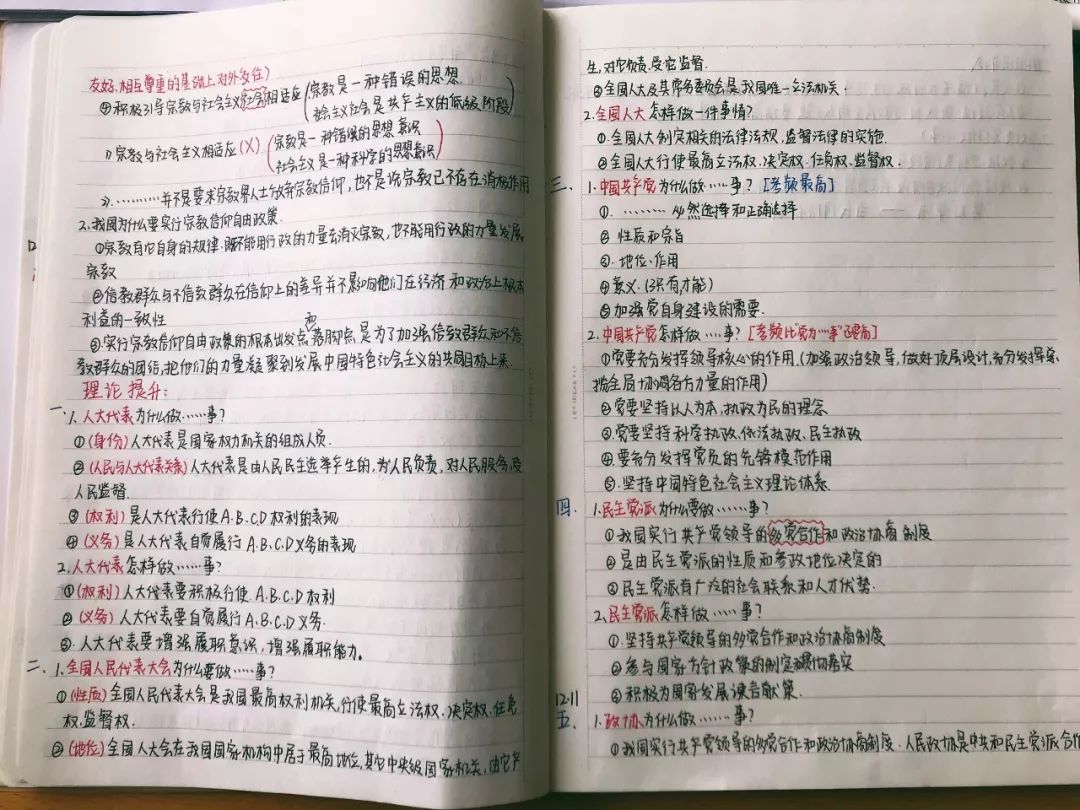 友好.相互尊重的基础上对外交往)
④积极引导宗教与社会主义社会相适应(宗教是一种错误的思想
社会主义社会是共产主义的低级阶段)
1)宗教与社会主义相适应(X)(宗教是一种错误的思想意识
社会主义是一种科学的思想意识)
2)............并不是要求宗教界人士放弃宗教信仰,也不是说宗教已不存在消极作用
2.我国为什么要实行宗教信仰自由政策.
①宗教有它自身的规律.既不能用行政的力量去消灭宗教,也不能用行政的力量发展
宗教
②信教群众与不信教群众在信仰上的差异并不影响他们在经济和政治上根本
利益的一致性
③.实行宗教信仰自由政策的根本出发点和落脚点是为了加强信教群众和不信
教群众的团结,把他们的力量凝聚到发展中国特色社会主义的共同目标上来.
理论提升:
一. 1.人大代表为什么做······事?
①(身份)人大代表是国家权力机关的组成人员.
②(人民与人大代表关系)人大代表是由人民民主选举产生的,为人民负责,对人民服务,受
人民监督.
③(权利)是人大代表行使A.B.C.D权利的表现
④(义务)是人大代表自觉履行A.B.C.D义务的表现
2.人大代表怎样做······事?
①(权利)人大代表要积极行使A.B.C.D权利
②(义务)人大代表要自觉履行A.B.C.D义务.
③.人大代表要增强履职意识,增强履职能力。
二、1.全国人民代表大会为什么要做······事?
①(性质)全国人民代表大会是我国最高权利机关,行使最高立法权.决定权.任免
权.监督权.
②(地位)全国人大会在我国国家机构中居于最高地位,其它中央级国家机关,由它产
生,对它负责.受它监督.
③全国人大及其常务委员会是我国唯一立法机关.
2.全国人大怎样做一件事情?
①.全国人大制定相关的法律法规,监督法律的实施.
②全国人大行使最高立法权.决定权.任免权.监督权.
三、 1.中国共产党为什么做······事?[考频最高]
①.·········必然选择和正确选择
②性质和宗旨
③.地位.作用
④意义.(只有才能)
⑤加强党自身建设的需要.
2.中国共产党怎样做·····事?[考频比党为··"事"还高]
①需要充分发挥领导核心的作用.(加强政治领导,做好顶层设计,充分发挥总
揽全局协调各方力量的作用)
②需要坚持以人为本,执政为民的理念
③.需要坚持科学执政、依法执政、民主执政
④.要充分发挥党员的先锋模范作用
⑤.坚持中国特色社会主义理论体系.
四. 1.民主党派为什么要做········事?
①我国实行共产党领导的多党合作和政治协商制度
②是由民主党派的性质和参政地位决定的
③.民主党派有广泛的社会联系和人才优势.
2.民主党派怎样做·····事?
①.坚持共产党领导的多党合作和政治协商制度
②参与国家方针政策的制定和贯彻落实
③积极为国家发展谏言献策.
12.11
五. 1.政协为什么做······事?
①我国实行共产党领导的多党合作和政治协商制度.人民政协是中共和民主党派合作